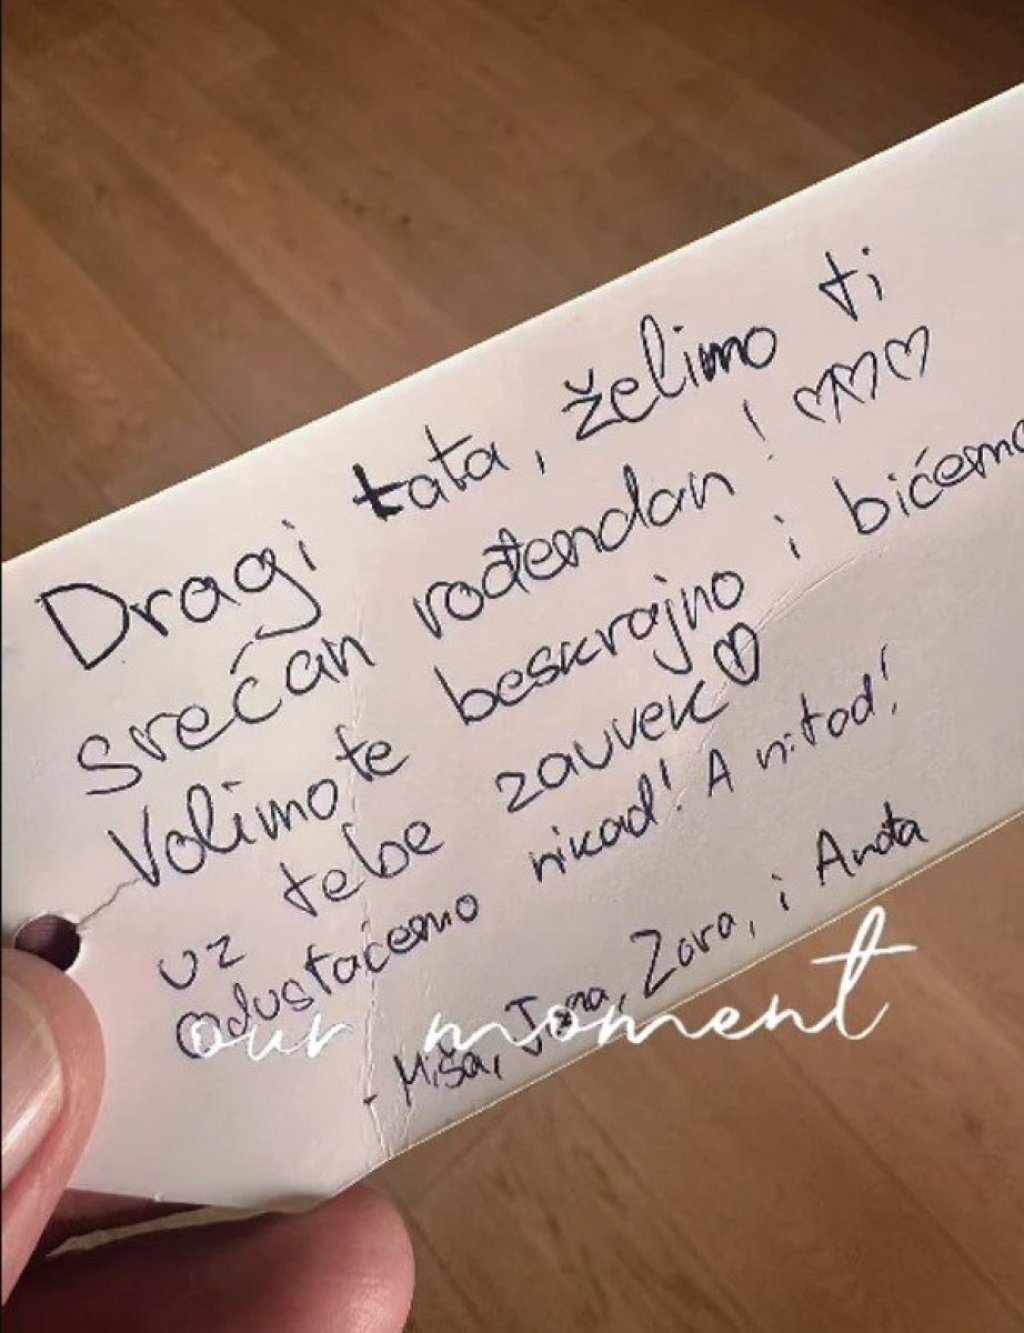 Dragi tata, želimo ti
srećan rođendan! ♡♡♡
Volimo te beskrajno i bićemo
uz tebe zauvek♡
Odustaćemo nikad! A nitad!
- Miša, Zora, i Anđa
our moment